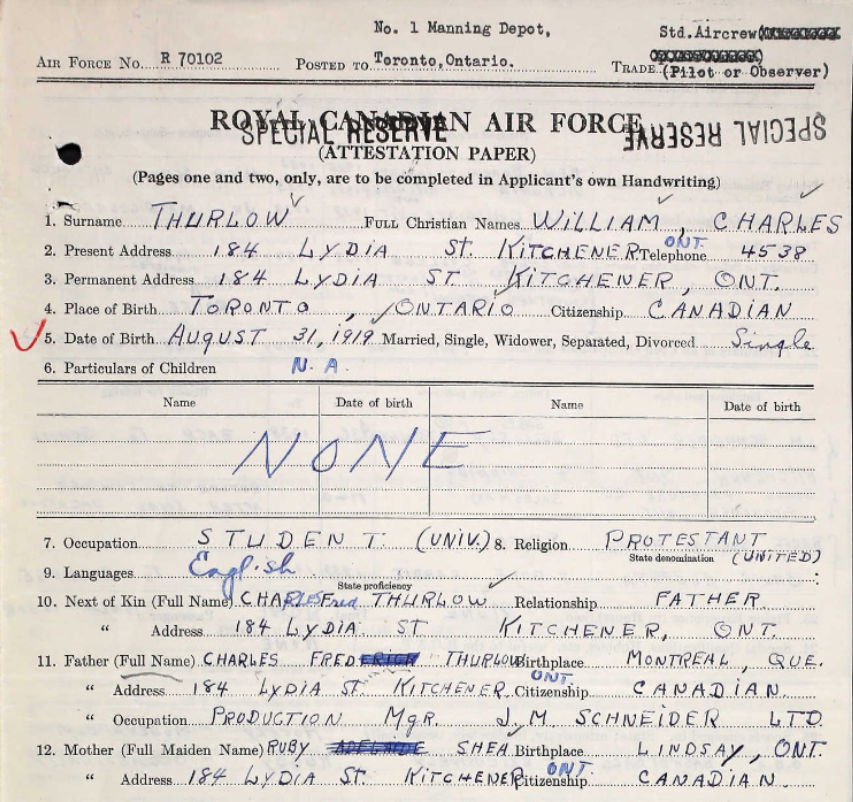 No. 1 Manning Depot, Std. Aircrew
AIR FORCE NO. R 70102 POSTED TO Toronto, Ontario. TRADE (Pilot or Observer)
ROYAL CANADIAN AIR FORCE
SPECIAL RESERVE SPECIAL RESERVE
(ATTESTATION PAPER)
(Pages one and two, only, are to be completed in Applicant's own Handwriting)
1. Surname THURLOW FULL Christian Names WILLIAM, CHARLES
2. Present Address 184 LYDIA ST. KITCHENER ONT. Telephone 4538
3. Permanent Address 184 LYDIA ST. KITCHENER, ONT.
4. Place of Birth TORONTO, ONTARIO Citizenship CANADIAN
5. Date of Birth AUGUST 31, 1919 Married, Single, Widower, Separated, Divorced Single
6. Particulars of Children N. A.
Name Date of birth Name Date of birth
NONE
7. Occupation STUDENT. (UNIV.) 8. Religion PROTESTANT
State denomination (UNITED)
9. Languages English
State proficiency
10. Next of Kin (Full Name) CHARLES Fred THURLOW Relationship FATHER
" Address 184 LYDIA ST KITCHENER, ONT.
11. Father (Full Name) CHARLES FRED THURLOW Birthplace MONTREAL, QUE.
" Address 184 LYDIA ST. KITCHENER. ONT. Citizenship CANADIAN
" Occupation PRODUCTION MGR. J. M. SCHNEIDER LTD.
12. Mother (Full Maiden Name) RUBY SHEA Birthplace LINDSAY, ONT.
" Address 184 LYDIA ST. KITCHENER ONT. Citizenship CANADIAN